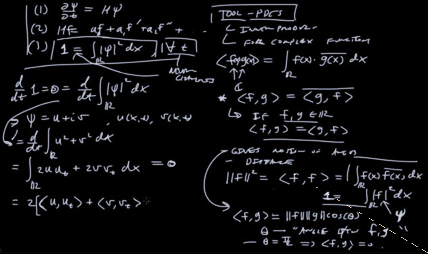 (1) ∂ψ/∂t = Hψ
(2) Hf = af + a₁f' + a₂f'' +
(3) 1 = ∫_ℝ |ψ|² dx ∀ t
d/dt 1 = 0 = d/dt ∫_ℝ |ψ|² dx
ψ = u + iv, u(x,t), v(x,t)
= d/dt ∫_ℝ u² + v² dx
= ∫_ℝ 2uu_t + 2vv_t dx = 0
= 2[⟨u, u_t⟩ + ⟨v, v_t⟩
TOOL - PDES
INNER PRODUCT
FOR COMPLEX FUNCTIONS
= ∫_ℝ f(x)·g(x)‾ dx
* ⟨f, g⟩ = ⟨g, f⟩‾
IF f, g ∈ ℝ
⟨f, g⟩ = ⟨g, f⟩
GIVES NOTION OF
- DISTANCE
‖f‖² = ⟨f, f⟩ = ∫_ℝ f(x) f(x)‾ dx
1 = ∫_ℝ |f|² dx
ψ
⟨f, g⟩ = ‖f‖ ‖g‖ cos(θ)
θ - "ANGLE BTW f, g"
- θ = π/2 ⇒ ⟨f, g⟩ = 0